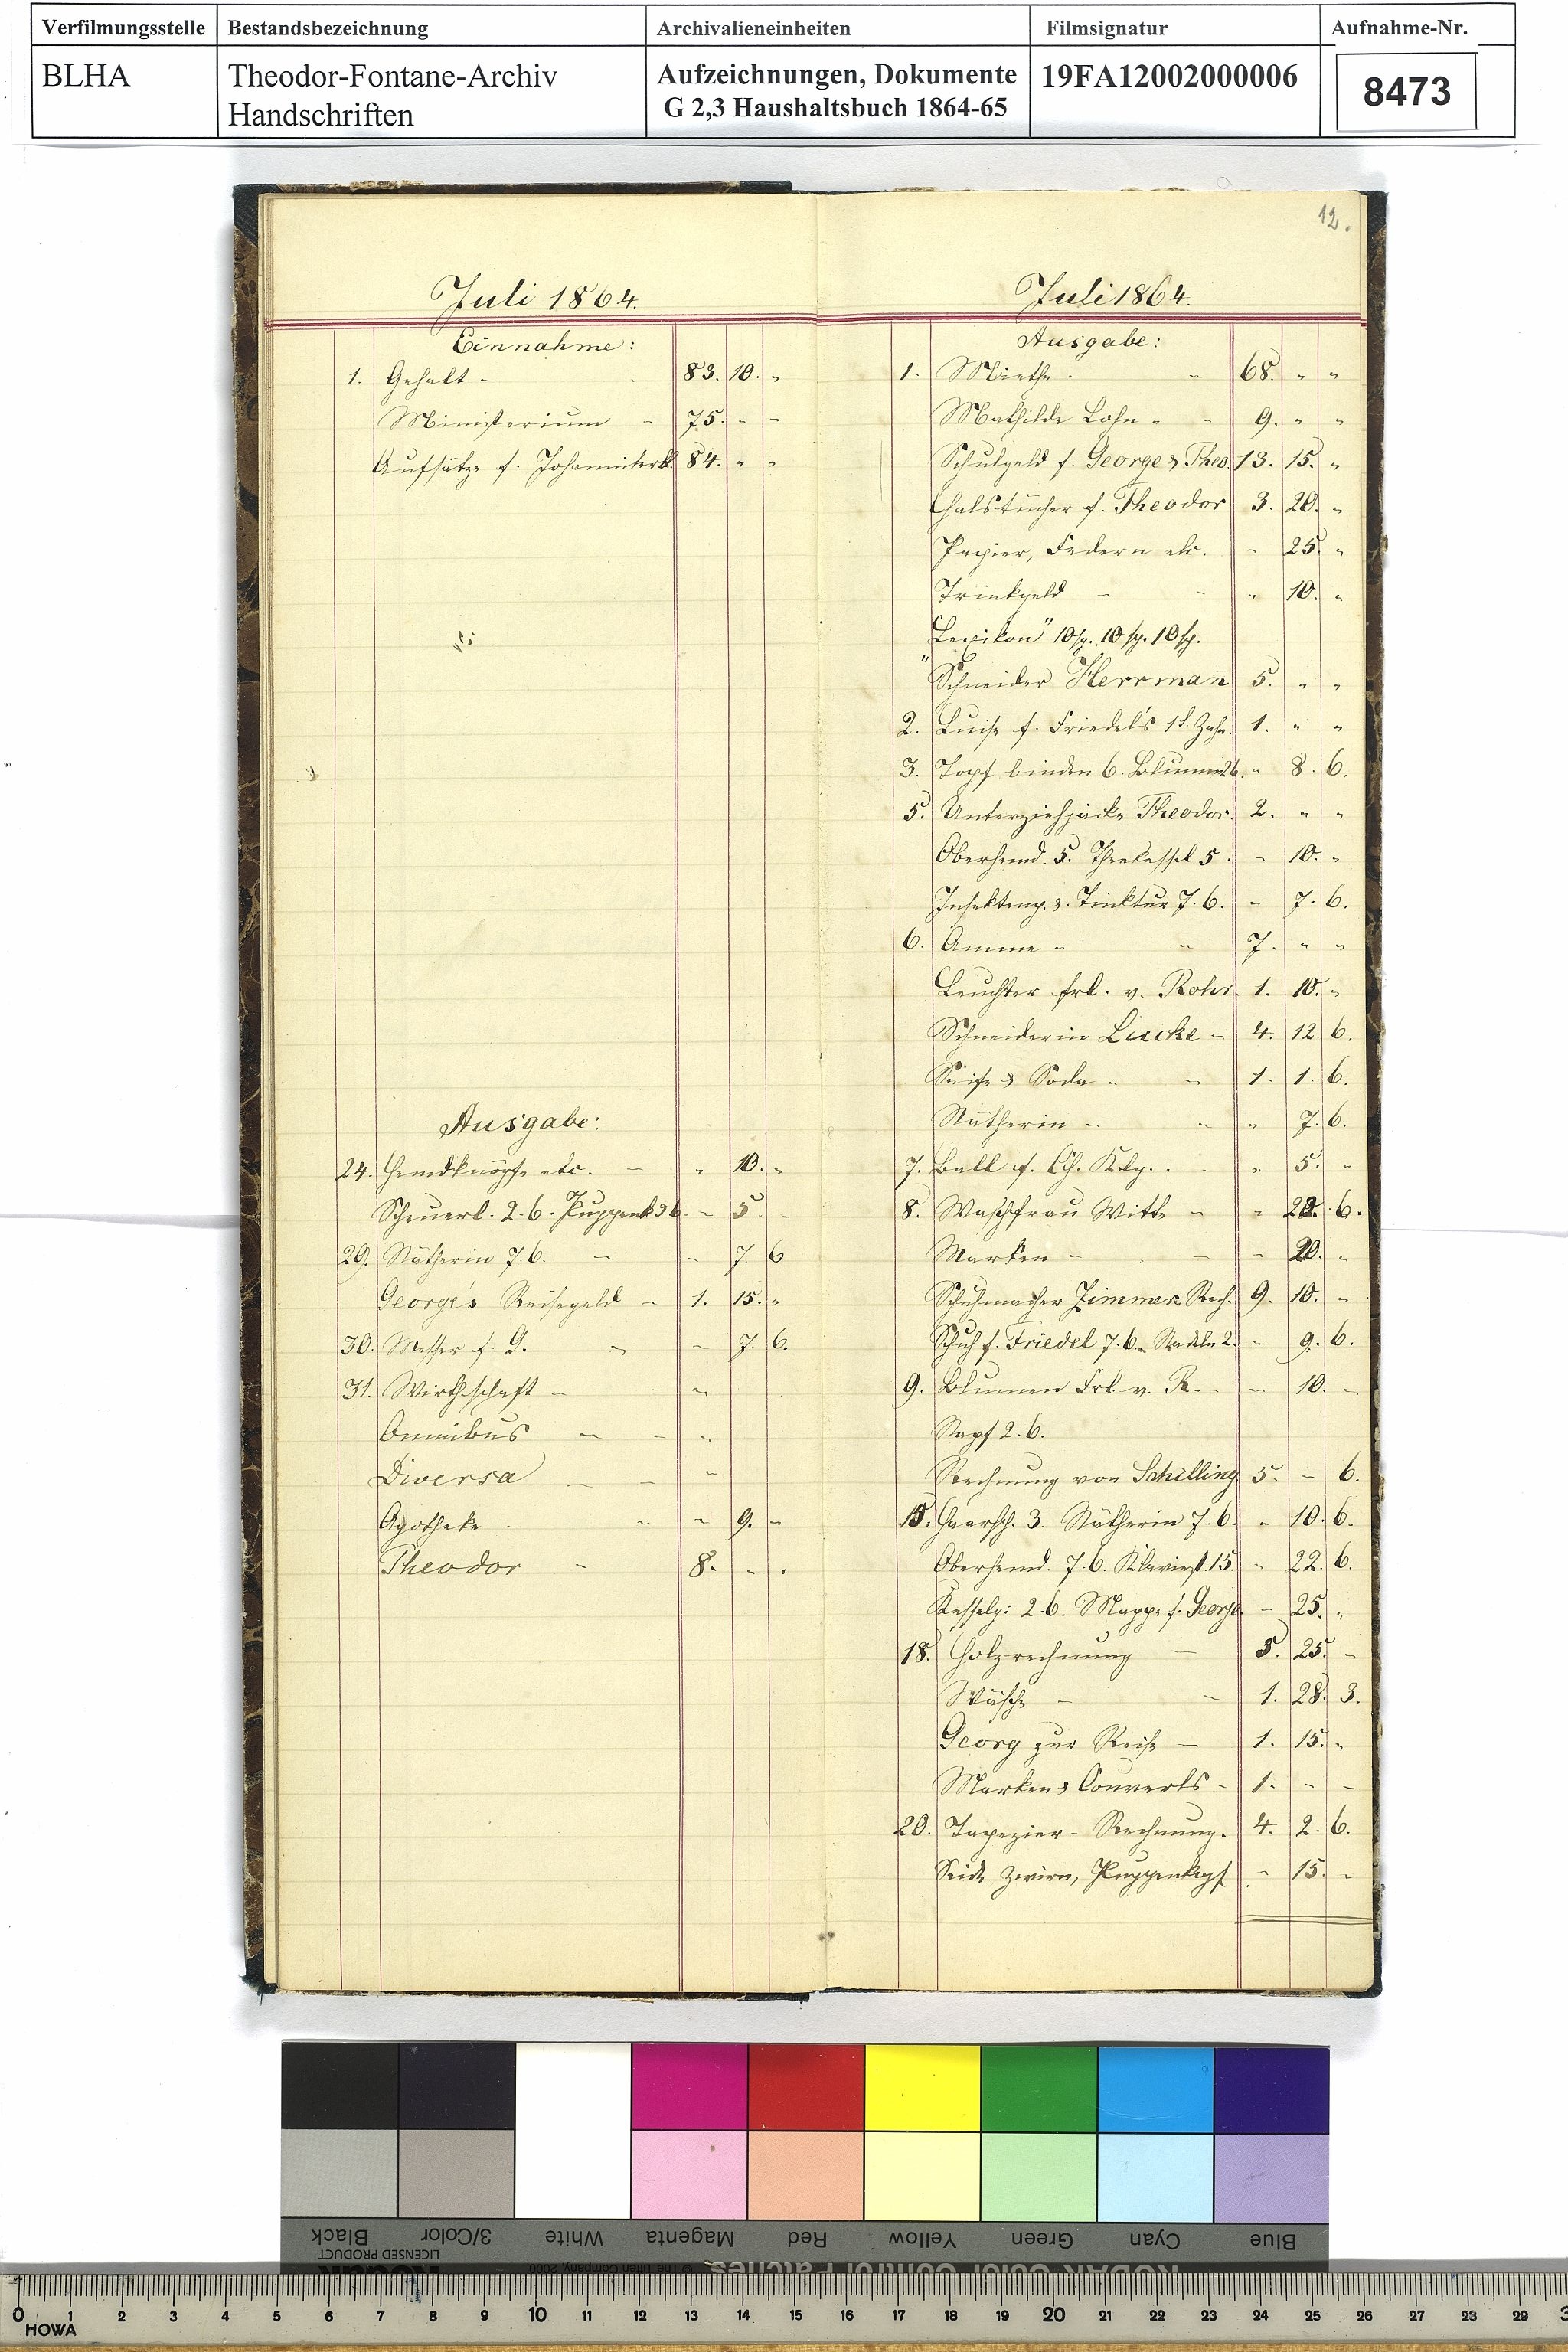 Verfilmungsstelle Bestandsbezeichnung Archivalieneinheiten Filmsignatur Aufnahme-Nr.
BLHA Theodor-Fontane-Archiv Handschriften Aufzeichnungen, Dokumente G 2,3 Haushaltsbuch 1864-65 19FA12002000006 8473
Juli 1864.
Einnahme:
1. Gehalt - 83. 10. "
Ministerium - 75. - -
Aufsätze f. Johanniterbl. 84. " "
Ausgabe:
24. Hemdknöpfe etc. - " 10. "
Scheuerl. 2.6. Puppenk 36. - 5. -
29. Nätherin 7.6. - - 7. 6
George's Reisegeld - 1. 15. "
30. Messer f. G. " - 7. 6.
31. Wirthschaft - - "
Omnibus - - "
Diversa - - "
Apotheke - " - 9. -
Theodor - 8. " "
12.
Juli 1864.
Ausgabe:
1. Miethe - " 68. " "
Mathilde Lohn " " 9. " "
Schulgeld f. George & Theo. 13. 15. "
Halstücher f. Theodor 3. 20. "
Papier, Federn etc. - 25. "
Trinkgeld - - " 10. "
"Lexikon" 10 sg. 10 sg. 10 sg.
Schneider Herrman̄ 5. " "
2. Luise f. Friedel's 1t. Zahn. 1. " "
3. Topf binden 6. Blumen 26. " 8. 6.
5. Unterziehjacke Theodor. 2. " "
Oberhemd. 5. Theekessel 5. - 10. "
Insektenp. & Tinktur 7.6. " 7. 6.
6. Amme " " 7. " "
Leuchter Frl. v. Rohr 1. 10. "
Schneiderin Lucke - 4. 12. 6.
Seife & Soda - " 1. 1. 6.
Nätherin - " " 7. 6.
7. Ball f. " 5. "
8. Waschfrau Witt - " 22. 6.
Marken - - - 20. "
Schuhmacher Zimmer. Rech. 9. 10. "
Schuh f. Friedel 7.6. 2. - 9. 6.
9. Blumen Frl. v. R. - - 10. -
Napf 2.6.
Rechnung von Schilling. 5. - 6.
15. Haarsch. 3. Nätherin 7.6. " 10. 6.
Oberhemd. 7.6. Klavierst. 15. - 22. 6.
2.6. Mappe f. George - 25. "
18. Holzrechnung - 5. 25. -
Wäsche - - 1. 28. 3.
Georg zur Reise - 1. 15. "
Marken & Couverts - 1. - -
20. Tapezier-Rechnung. 4. 2. 6.
Seide Zwirn, Puppenkopf - 15. -
Black 3/Color White Magenta Red Yellow Green Cyan Blue
Kodak LICENSED PRODUCT © The Tiffen Company, 2000 KODAK Color Control Patches
0 1 2 3 4 5 6 7 8 9 10 11 12 13 14 15 16 17 18 19 20 21 22 23 24 25 26 27 28 29
HOWA